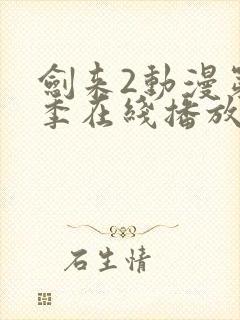 劍来2動漫第
季在綫播放
石生情